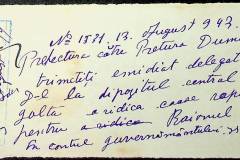 No 1581, 13. August 947.
Prefectura către Pretura Dum
trimiteți emidiat delegat
D-l la dipozitul central
galta a ridica coase rap
pentru a ridica Raionul
În contul guvernământului.